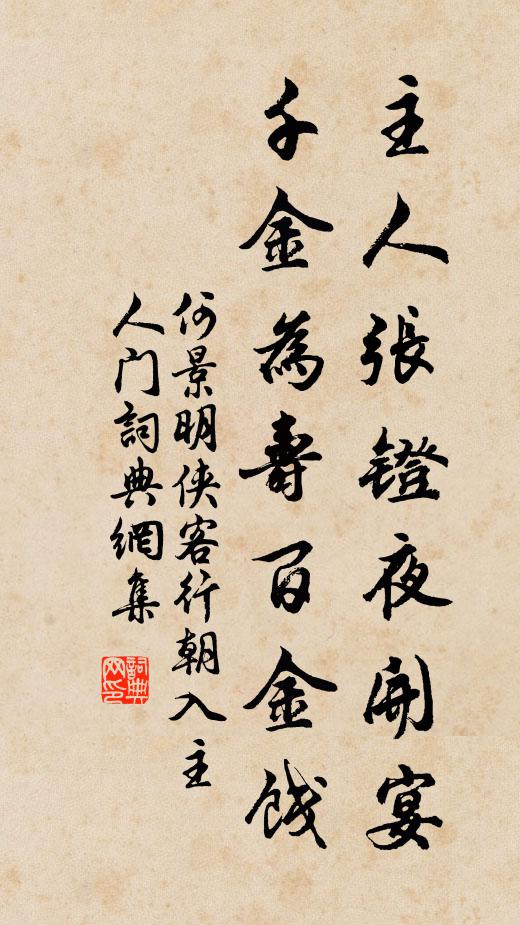 主人張鐙夜開宴
千金為壽百金餞
何景明俠客行朝入主
人门詞典網集
詞典
网印